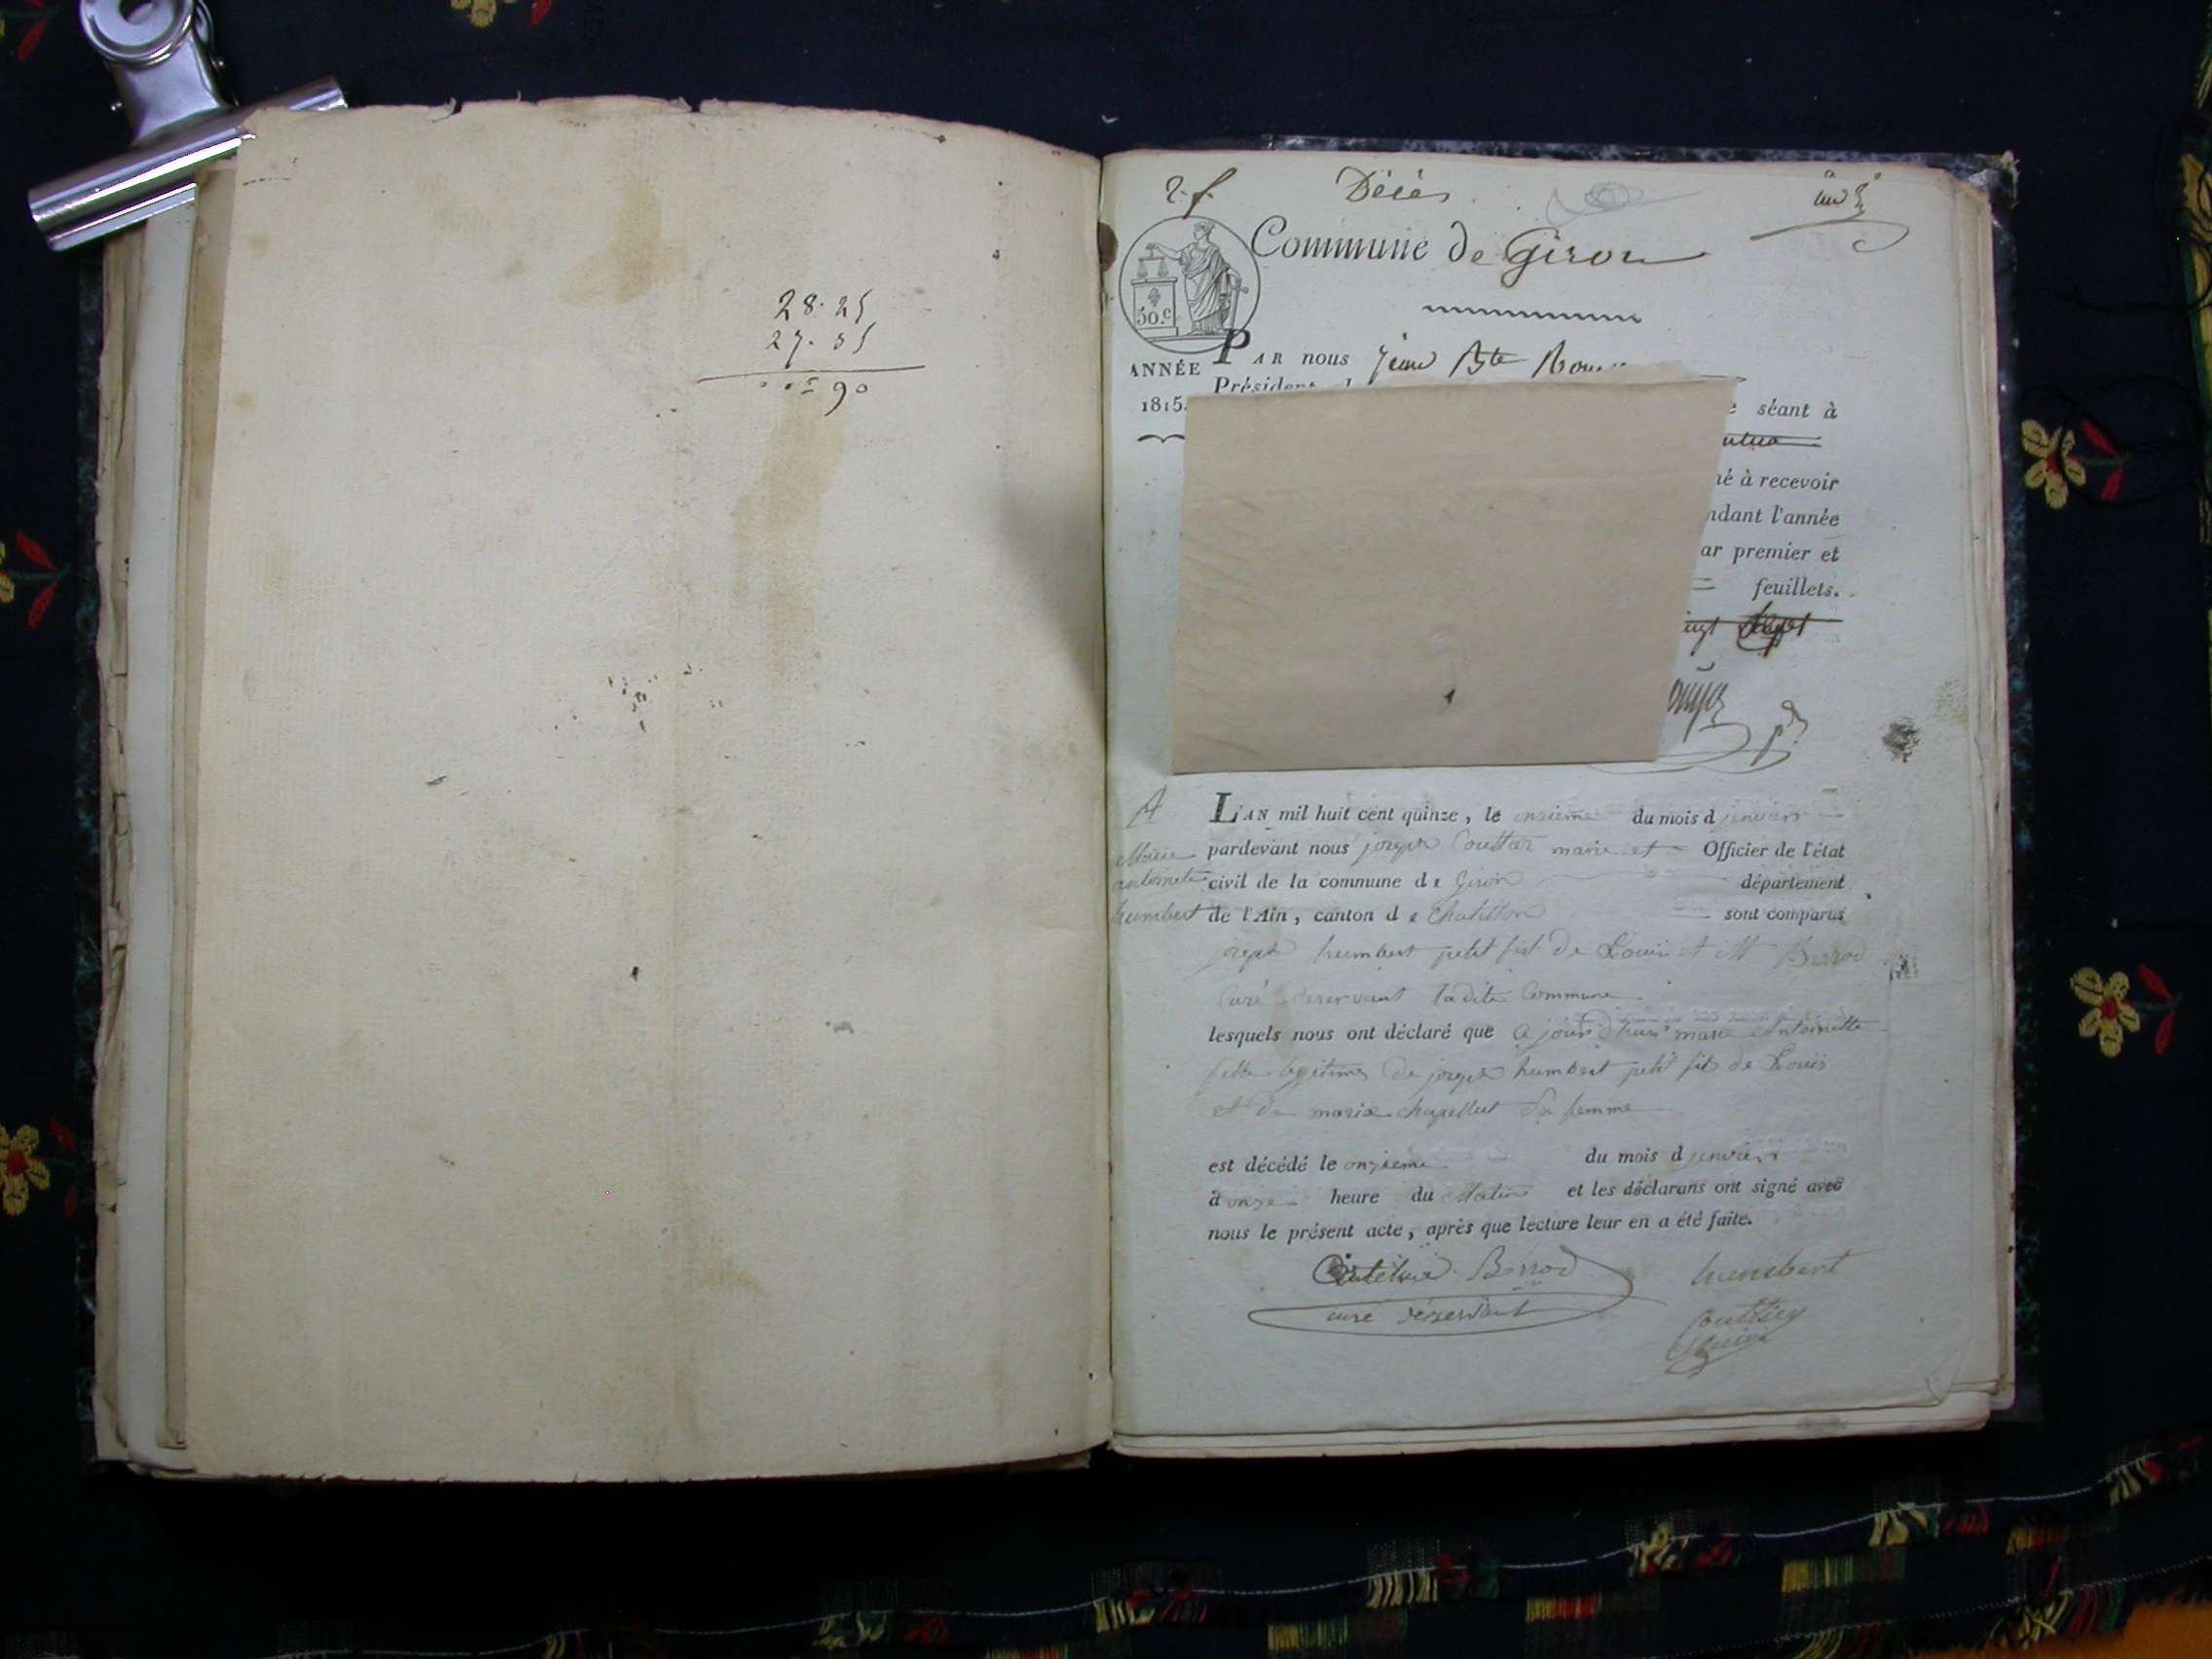 28. 25
27. 35
90
2. f.
Décès
Commune de Giron
50.c
ANNÉE
1815.
PAR nous Jean Bte
Président
séant à
à recevoir
ndant l'année
ar premier et
feuillets.
A
Marie
antoinette
humbert
L'AN mil huit cent quinze, le onzieme du mois d janvier
pardevant nous joseph Couttier maire et Officier de l'état
civil de la commune de Giron département
de l'Ain, canton de Chatillon sont comparus
joseph humbert petit fils de Louis et M Berrod
Curé desservant ladite Commune
lesquels nous ont déclaré que ajourd'hui marie Antoinette
fille legitime de joseph humbert petit fils de Louis
et de marie chapellut sa femme
est décédé le onzieme du mois d janvier
à onze heure du Matin et les déclarans ont signé avec
nous le présent acte, après que lecture leur en a été faite.
Berrod
curé desservant
humbert
Couttier